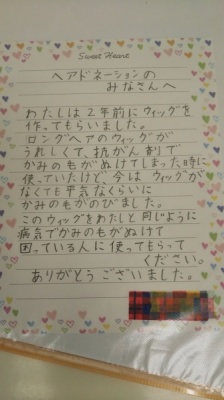 Sweet Heart
ヘアドネーションの
みなさんへ
わたしは2年前にウィッグを
作ってもらいました。
ロングヘアのウィッグが
うれしくて、抗がん剤で
かみのもがぬけてしまった時に
使っていたけど今は ウィッグが
なくても平気なくらいに
かみのもがのびました。
このウィッグをわたしと同じように
病気でかみのもがぬけて
困っている人に使ってもらって
ください。
ありがとうございました。